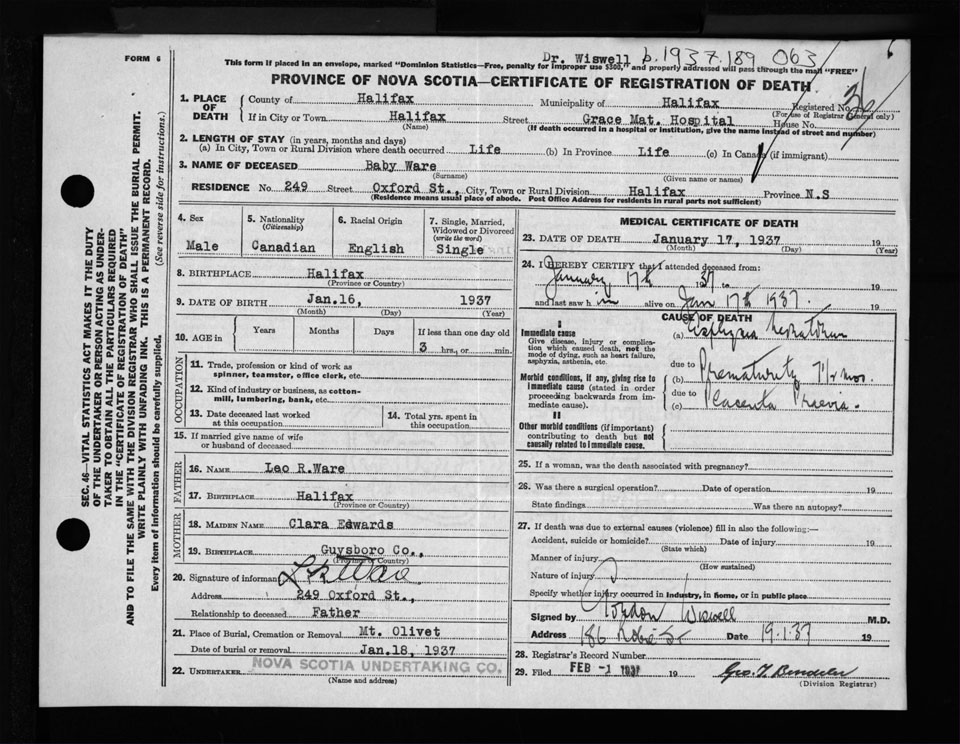 FORM 6
Dr. Wiswell b.1937.189 063
This form if placed in an envelope, marked "Dominion Statistics—Free, penalty for improper use $300," and properly addressed will pass through the mail "FREE"
PROVINCE OF NOVA SCOTIA—CERTIFICATE OF REGISTRATION OF DEATH
1. PLACE OF DEATH County of Halifax Municipality of Halifax Registered No.
(For use of Registrar General only)
If in City or Town Halifax Street Grace Mat. Hospital House No.
(Name) (If death occurred in a hospital or institution, give the name instead of street and number)
2. LENGTH OF STAY (in years, months and days)
(a) In City, Town or Rural Division where death occurred Life (b) In Province Life (c) In Canada (if immigrant)
3. NAME OF DECEASED Baby Ware
(Surname) (Given name or names)
RESIDENCE No. 249 Street Oxford St., City, Town or Rural Division Halifax Province N.S
(Residence means usual place of abode. Post Office Address for residents in rural parts not sufficient)
4. Sex 5. Nationality (Citizenship) 6. Racial Origin 7. Single, Married, Widowed or Divorced (write the word)
Male Canadian English Single
8. BIRTHPLACE Halifax
(Province or Country)
9. DATE OF BIRTH Jan.16, 1937
(Month) (Day) (Year)
10. AGE in Years Months Days If less than one day old
3 hrs., or min.
OCCUPATION
11. Trade, profession or kind of work as spinner, teamster, office clerk, etc.
12. Kind of industry or business, as cotton-mill, lumbering, bank, etc.
13. Date deceased last worked at this occupation
14. Total yrs. spent in this occupation
15. If married give name of wife or husband of deceased
FATHER
16. NAME Leo R.Ware
17. BIRTHPLACE Halifax
(Province or Country)
MOTHER
18. MAIDEN NAME Clara Edwards
19. BIRTHPLACE Guysboro Co.,
(Province or Country)
20. Signature of informant L R Ware
Address 249 Oxford St.,
Relationship to deceased Father
21. Place of Burial, Cremation or Removal Mt. Olivet
Date of burial or removal Jan.18, 1937
22. UNDERTAKER NOVA SCOTIA UNDERTAKING CO.
(Name and address)
MEDICAL CERTIFICATE OF DEATH
23. DATE OF DEATH January 17, 1937 19
(Month) (Day) (Year)
24. I HEREBY CERTIFY that I attended deceased from:
January 17th 1937
and last saw h im alive on Jan 17th 1937. 19
CAUSE OF DEATH
I
Immediate cause (a) Asphyxia Neonatorum
Give disease, injury or complication which caused death, not the mode of dying, such as heart failure, asphyxia, asthenia, etc.
Morbid conditions, if any, giving rise to immediate cause (stated in order proceeding backwards from immediate cause).
due to
(b) Prematurity 7 1/2 mos.
due to
(c) Placenta Praevia
II
Other morbid conditions (if important) contributing to death but not causally related to immediate cause.
25. If a woman, was the death associated with pregnancy?
26. Was there a surgical operation? Date of operation 19
State findings Was there an autopsy?
27. If death was due to external causes (violence) fill in also the following:—
Accident, suicide or homicide? Date of injury 19
(State which)
Manner of injury
(How sustained)
Nature of injury
Specify whether injury occurred in industry, in home, or in public place
Signed by Gordon Wiswell M.D.
Address 186 Robie St Date 19-1-37 19
28. Registrar's Record Number
29. Filed FEB -1 1937 19
(Division Registrar)
SEC. 46—VITAL STATISTICS ACT MAKES IT THE DUTY
OF THE UNDERTAKER OR PERSON ACTING AS UNDER-
TAKER TO OBTAIN ALL THE PARTICULARS REQUIRED
IN THE "CERTIFICATE OF REGISTRATION OF DEATH"
AND TO FILE THE SAME WITH THE DIVISION REGISTRAR WHO SHALL ISSUE THE BURIAL PERMIT.
WRITE PLAINLY WITH UNFADING INK. THIS IS A PERMANENT RECORD.
Every item of information should be carefully supplied. (See reverse side for instructions.)